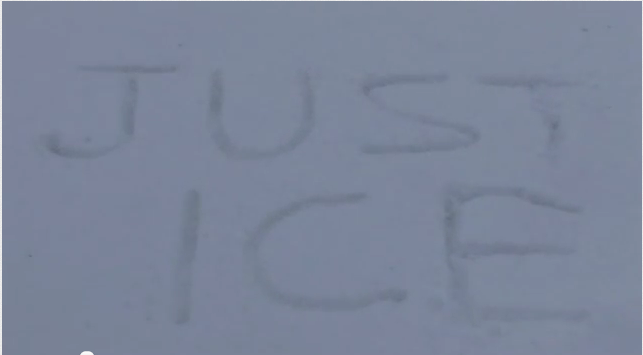 JUST
ICE